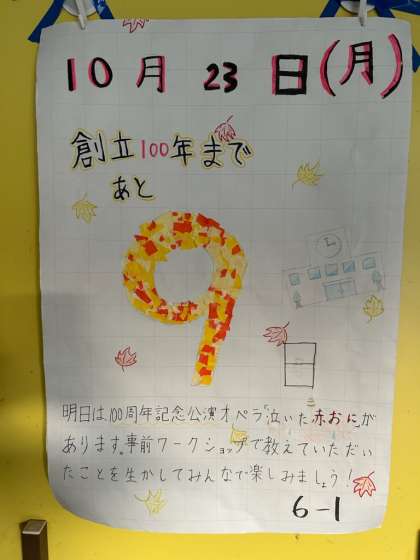 10月 23 日(月)
創立100年まで
あと
9
明日は、100周年記念公演オペラ「泣いた赤おに」が
あります。事前ワークショップで教えていただい
たことを生かしてみんなで楽しみましょう!
6-1